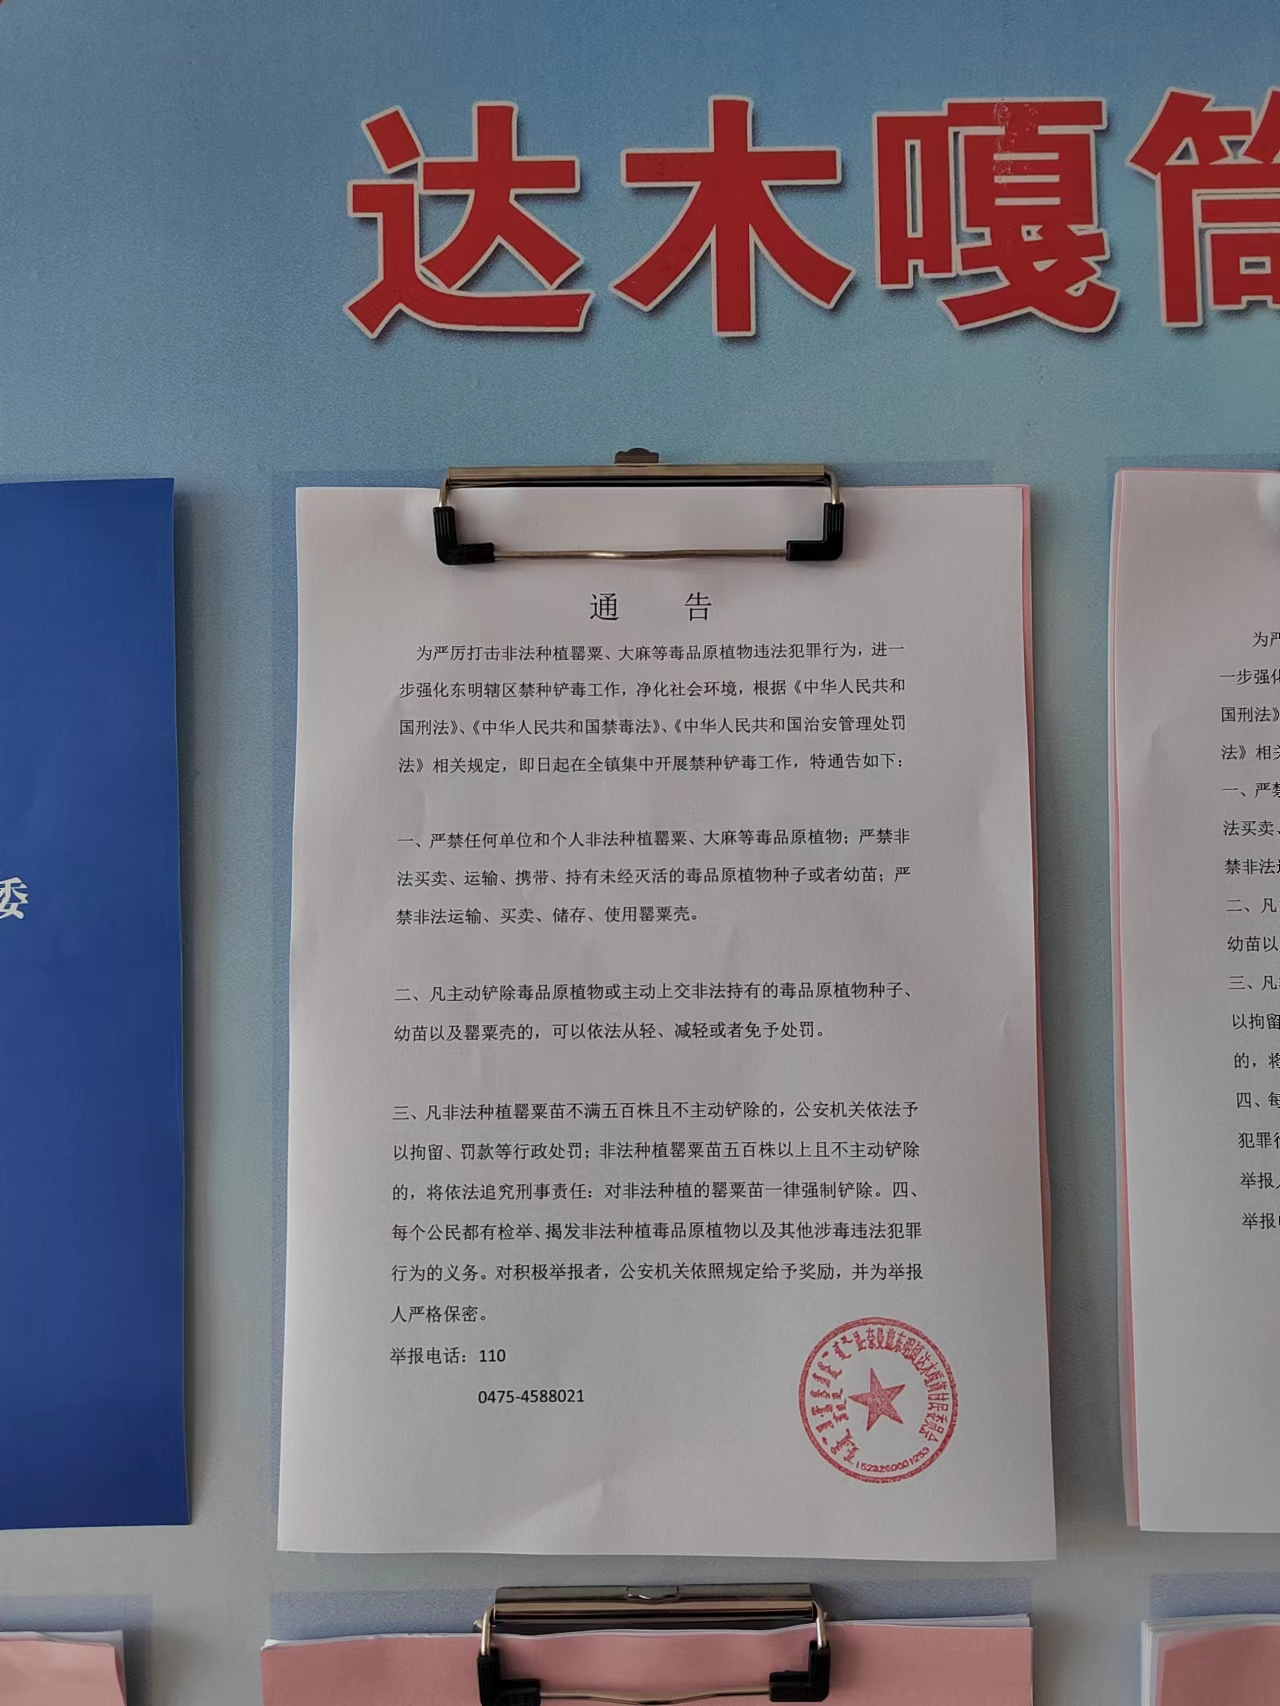 达木嘎筒
委
通 告
为严厉打击非法种植罂粟、大麻等毒品原植物违法犯罪行为，进一
步强化东明辖区禁种铲毒工作，净化社会环境，根据《中华人民共和
国刑法》、《中华人民共和国禁毒法》、《中华人民共和国治安管理处罚
法》相关规定，即日起在全镇集中开展禁种铲毒工作，特通告如下：
一、严禁任何单位和个人非法种植罂粟、大麻等毒品原植物；严禁非
法买卖、运输、携带、持有未经灭活的毒品原植物种子或者幼苗；严
禁非法运输、买卖、储存、使用罂粟壳。
二、凡主动铲除毒品原植物或主动上交非法持有的毒品原植物种子、
幼苗以及罂粟壳的，可以依法从轻、减轻或者免予处罚。
三、凡非法种植罂粟苗不满五百株且不主动铲除的，公安机关依法予
以拘留、罚款等行政处罚；非法种植罂粟苗五百株以上且不主动铲除
的，将依法追究刑事责任：对非法种植的罂粟苗一律强制铲除。四、
每个公民都有检举、揭发非法种植毒品原植物以及其他涉毒违法犯罪
行为的义务。对积极举报者，公安机关依照规定给予奖励，并为举报
人严格保密。
举报电话：110
0475-4588021
为严
一步强化
国刑法》
法》相关
一、严禁
法买卖、
禁非法运
二、凡
幼苗以
三、凡
以拘留
的，将
四、每
犯罪行
举报人
举报电